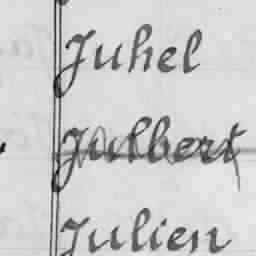 Juhel
Julbert
Julien